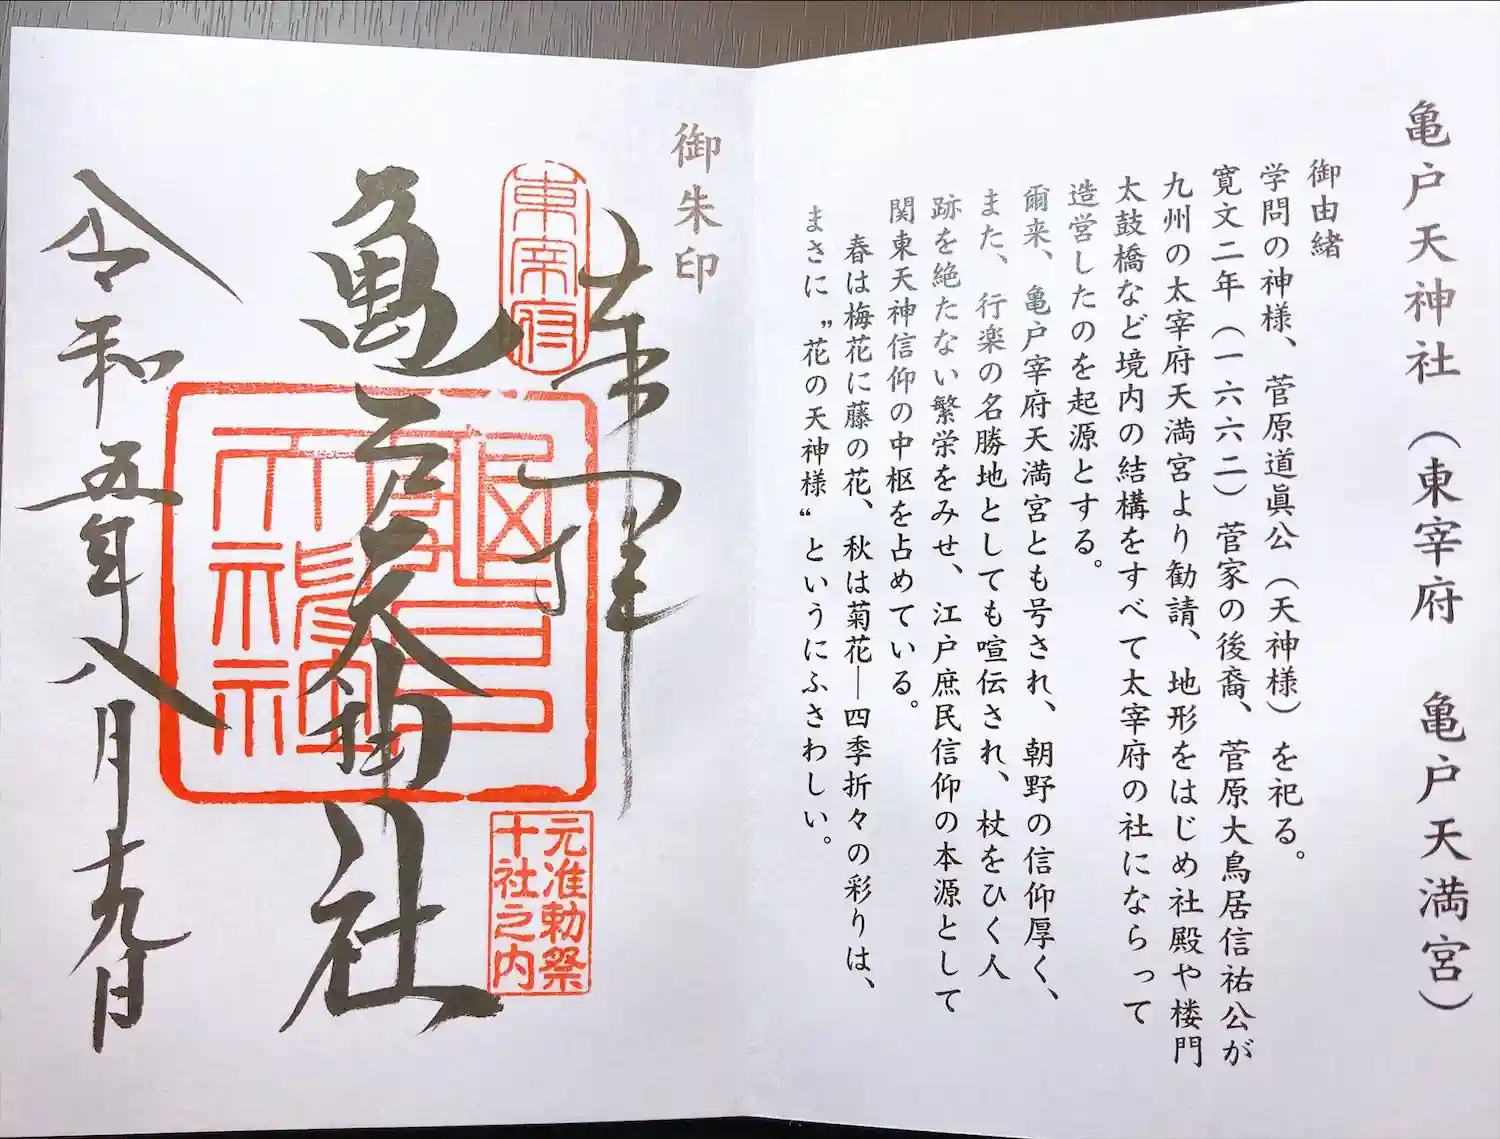 亀戸天神社（東宰府　亀戸天満宮）
御由緒
学問の神様、菅原道眞公（天神様）を祀る。
寛文二年（一六六二）菅家の後裔、菅原大鳥居信祐公が
九州の太宰府天満宮より勧請、地形をはじめ社殿や楼門
太鼓橋など境内の結構をすべて太宰府の社にならって
造営したのを起源とする。
爾来、亀戸宰府天満宮とも号され、朝野の信仰厚く、
また、行楽の名勝地としても喧伝され、杖をひく人
跡を絶たない繁栄をみせ、江戸庶民信仰の本源として
関東天神信仰の中枢を占めている。
春は梅花に藤の花、秋は菊花―四季折々の彩りは、
まさに〝花の天神様〟というにふさわしい。
御朱印
奉拝
東宰府
元准勅祭
十社之内
亀戸天神社
令和五年八月十九日